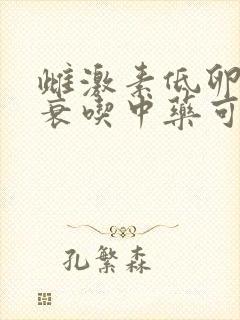 雌激素低卵
衰喫中藥可
孔繁森